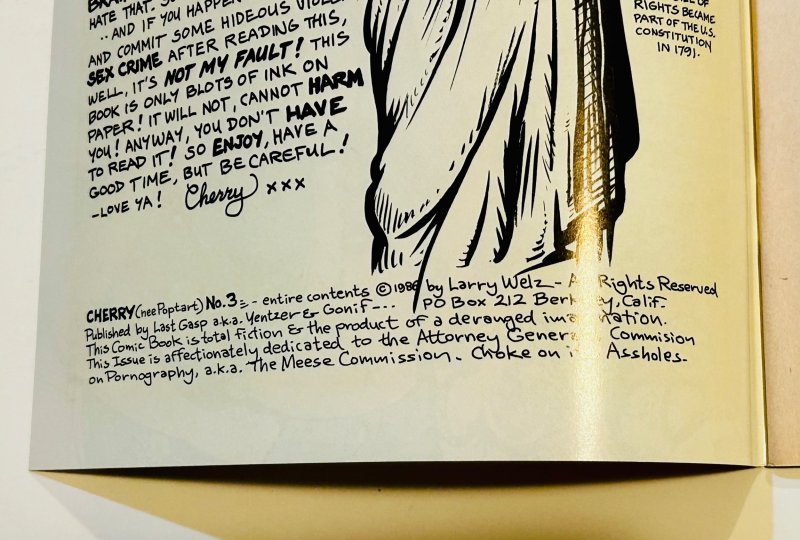 HATE THAT.
..AND IF YOU HAPPEN
AND COMMIT SOME HIDEOUS
SEX CRIME AFTER READING THIS,
WELL, IT'S NOT MY FAULT! THIS
BOOK IS ONLY BLOTS OF INK ON
PAPER! IT WILL NOT, CANNOT HARM
YOU! ANYWAY, YOU DON'T HAVE
TO READ IT! SO ENJOY, HAVE A
GOOD TIME, BUT BE CAREFUL!
-LOVE YA! Cherry xxx
RIGHTS BECAME
PART OF THE U.S.
CONSTITUTION
IN 1791.
CHERRY (nee Poptart) No.3 - entire contents © 1986 by Larry Welz - All Rights Reserved
Published by Last Gasp a.k.a. Yentzer & Gonif --.. PO Box 212 Berkeley, Calif.
This Comic Book is total fiction & the product of a deranged imagination.
This Issue is affectionately dedicated to the Attorney General Commision
on Pornography, a.k.a. The Meese Commission. Choke on it Assholes.